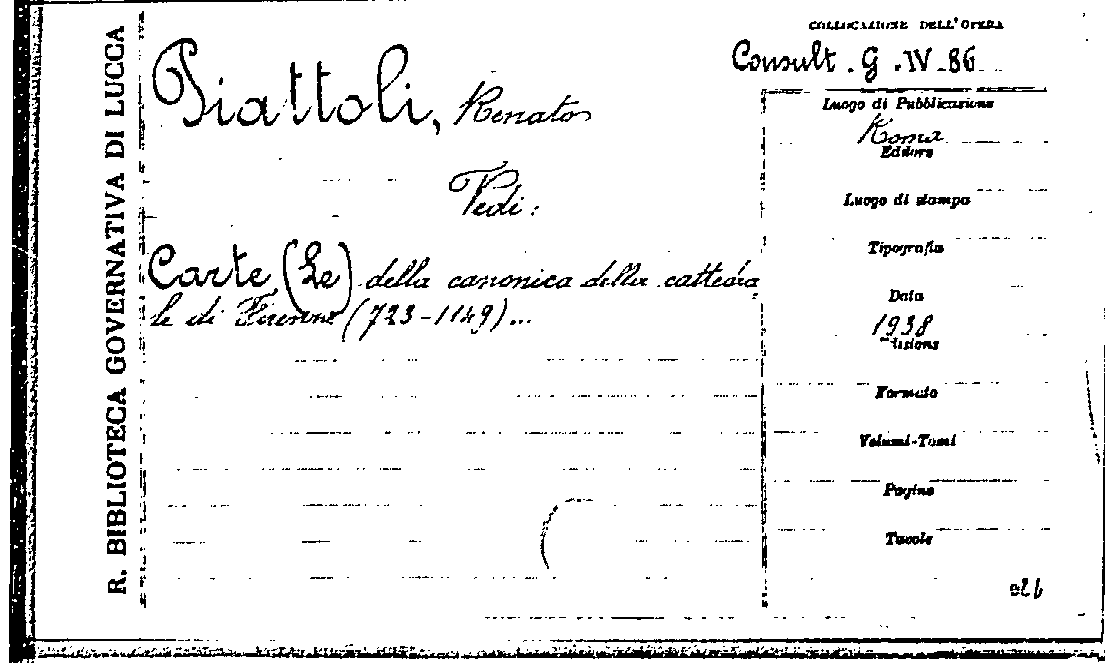 R. BIBLIOTECA GOVERNATIVA DI LUCCA
COLLOCAZIONE DELL'OPERA
Consult. G. IV-86
Piattoli, Renato
Vedi:
Carte (Le) della canonica della cattedra
le di Firenze (723-1149)...
Luogo di Pubblicazione
Roma
Editore
Luogo di stampa
Tipografia
Data
1938
Edizione
Formato
Volumi-Tomi
Pagine
Tavole